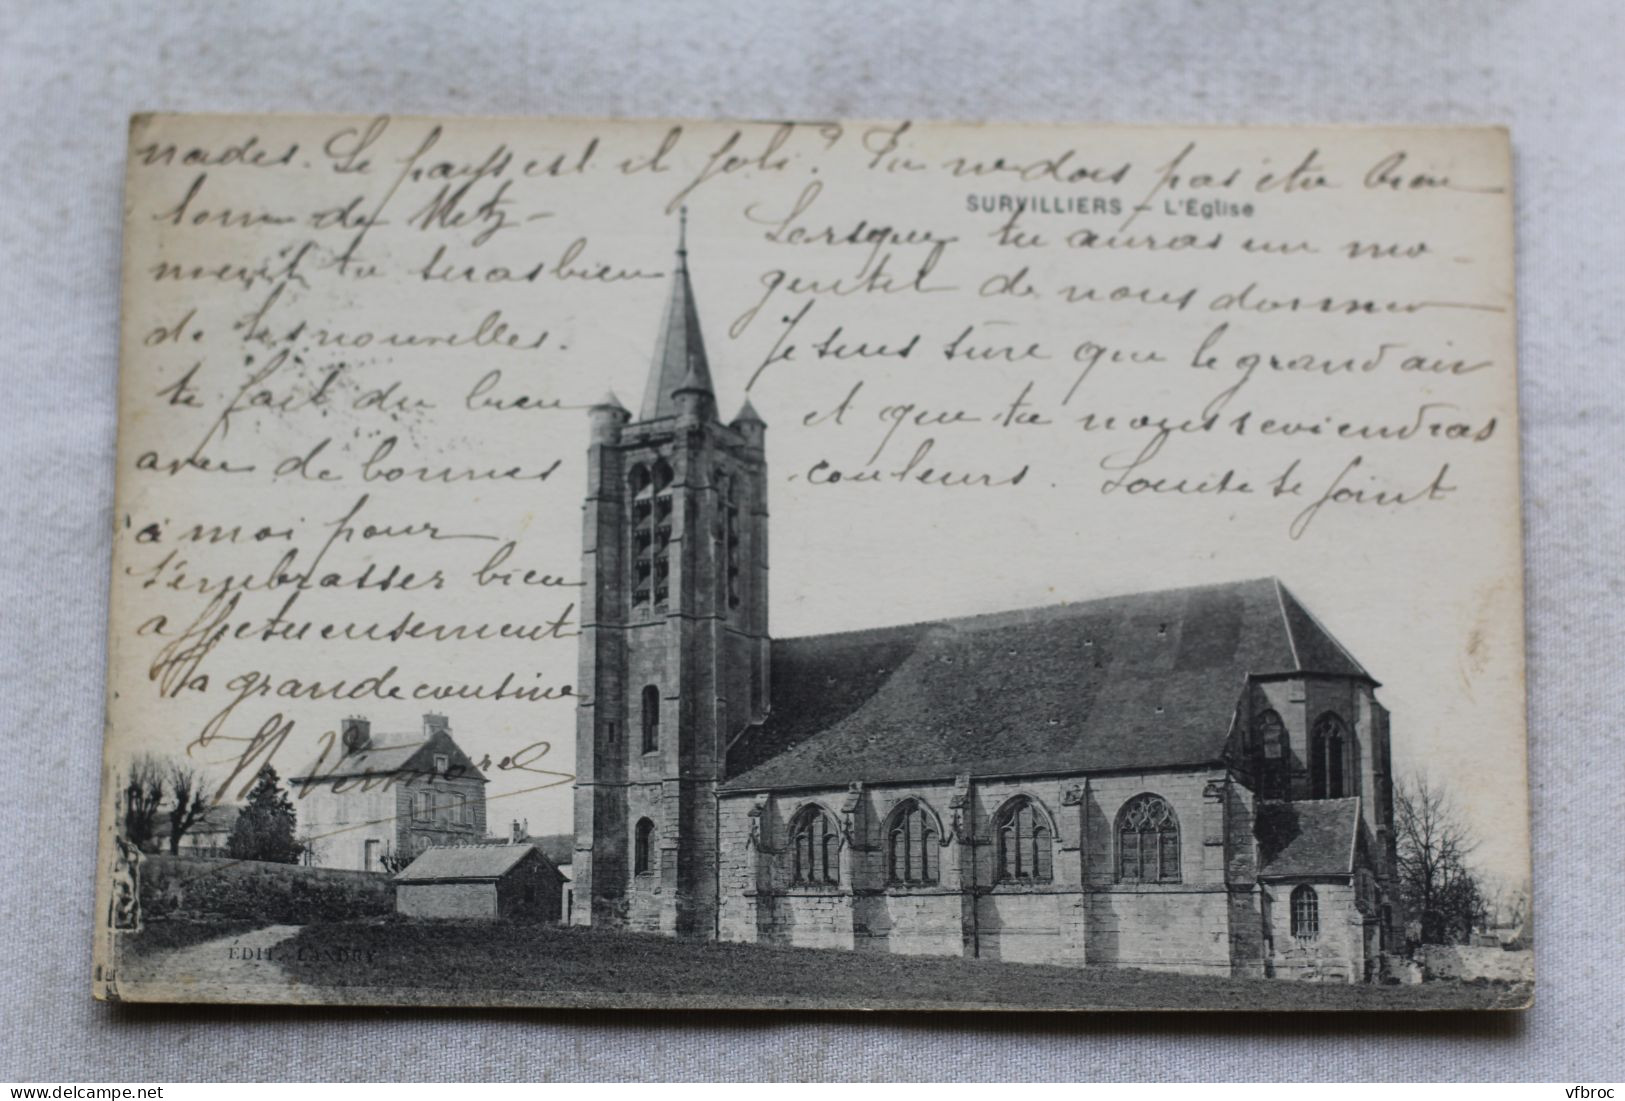 nades. Le pays est il joli? Tu ne dois pas être bien
loin de Metz –
SURVILLIERS — L'Église
Lorsque tu auras un mo-
ment tu seras bien
gentil de nous donner
de tes nouvelles.
Je suis sûre que le grand air
te fait du bien
et que tu nous reviendras
avec de bonnes
couleurs. Louise se joint
à moi pour
t'embrasser bien
affectueusement
Ta grande cousine
ÉDIT. LANDRY
vfbroc